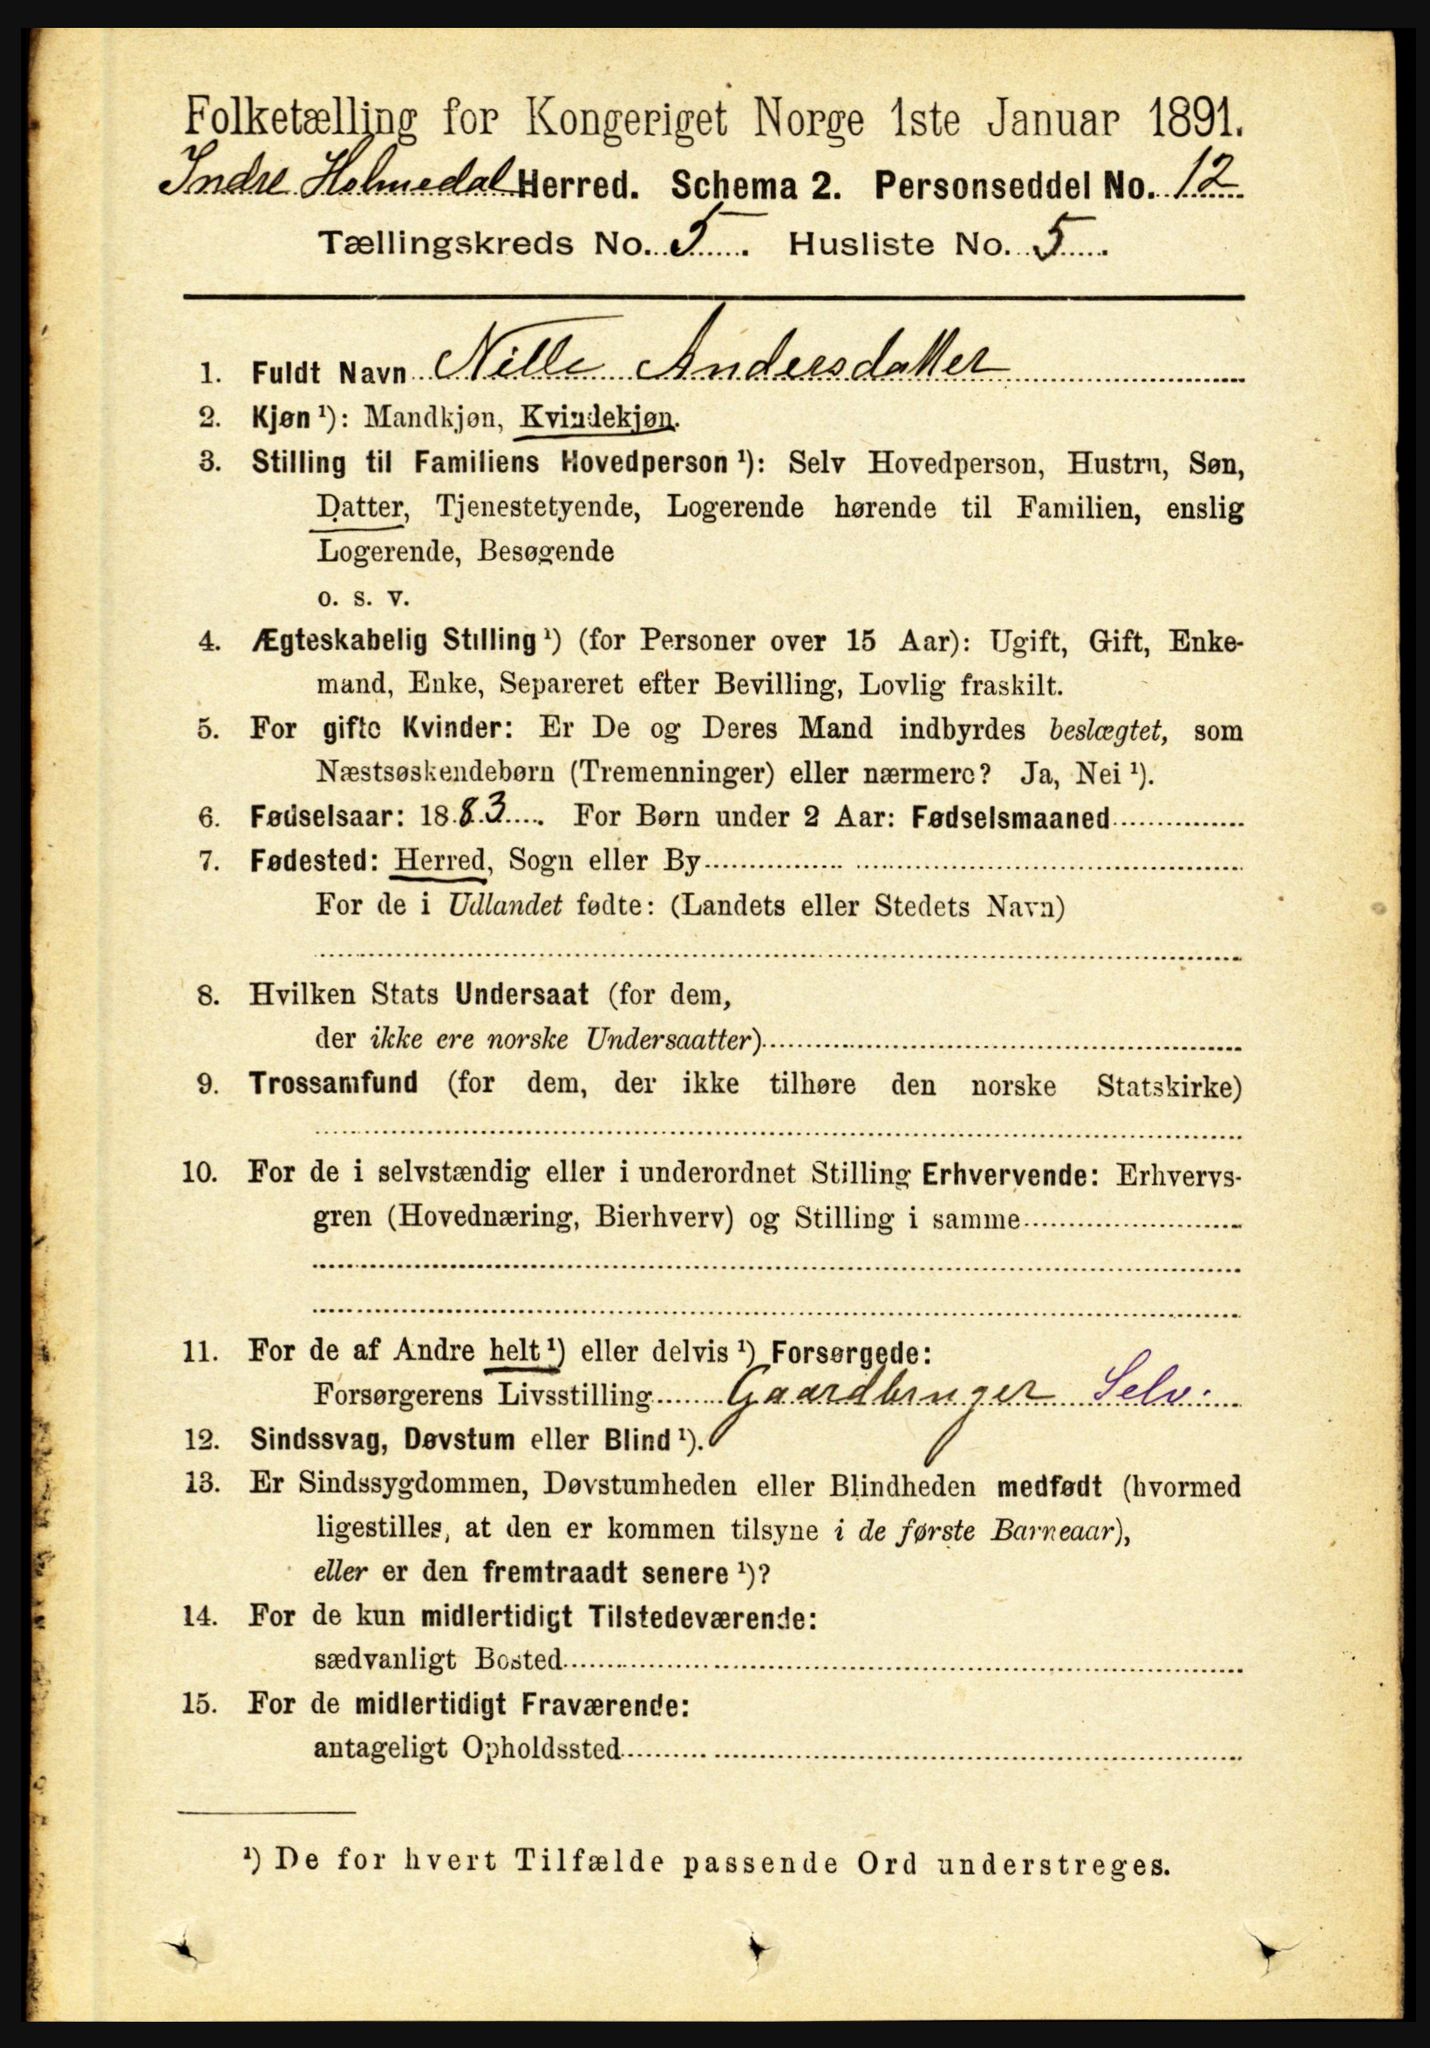 Folketælling for Kongeriget Norge 1ste Januar 1891.
Indre Holmedal Herred. Schema 2. Personseddel No. 12
Tællingskreds No. 5. Husliste No. 5.
1. Fuldt Navn Nille Andersdatter
2. Kjøn¹): Mandkjøn, Kvindekjøn.
3. Stilling til Familiens Hovedperson¹): Selv Hovedperson, Hustru, Søn,
Datter, Tjenestetyende, Logerende hørende til Familien, enslig
Logerende, Besøgende
o. s. v.
4. Ægteskabelig Stilling¹) (for Personer over 15 Aar): Ugift, Gift, Enke-
mand, Enke, Separeret efter Bevilling, Lovlig fraskilt.
5. For gifte Kvinder: Er De og Deres Mand indbyrdes beslægtet, som
Næstsøskendebørn (Tremenninger) eller nærmere? Ja, Nei¹).
6. Fødselsaar: 1883. For Børn under 2 Aar: Fødselsmaaned
7. Fødested: Herred, Sogn eller By
For de i Udlandet fødte: (Landets eller Stedets Navn)
8. Hvilken Stats Undersaat (for dem,
der ikke ere norske Undersaatter)
9. Trossamfund (for dem, der ikke tilhøre den norske Statskirke)
10. For de i selvstændig eller i underordnet Stilling Erhvervende: Erhvervs-
gren (Hovednæring, Bierhverv) og Stilling i samme
11. For de af Andre helt¹) eller delvis¹) Forsørgede:
Forsørgerens Livsstilling Gaardbruger Selv.
12. Sindssvag, Døvstum eller Blind¹).
13. Er Sindssygdommen, Døvstumheden eller Blindheden medfødt (hvormed
ligestilles, at den er kommen tilsyne i de første Barneaar),
eller er den fremtraadt senere¹)?
14. For de kun midlertidigt Tilstedeværende:
sædvanligt Bosted
15. For de midlertidigt Fraværende:
antageligt Opholdssted
¹) De for hvert Tilfælde passende Ord understreges.